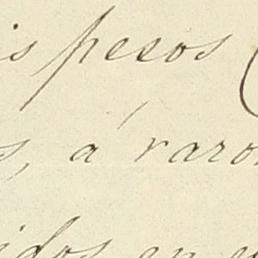 is pesos
s, á razon
idos en